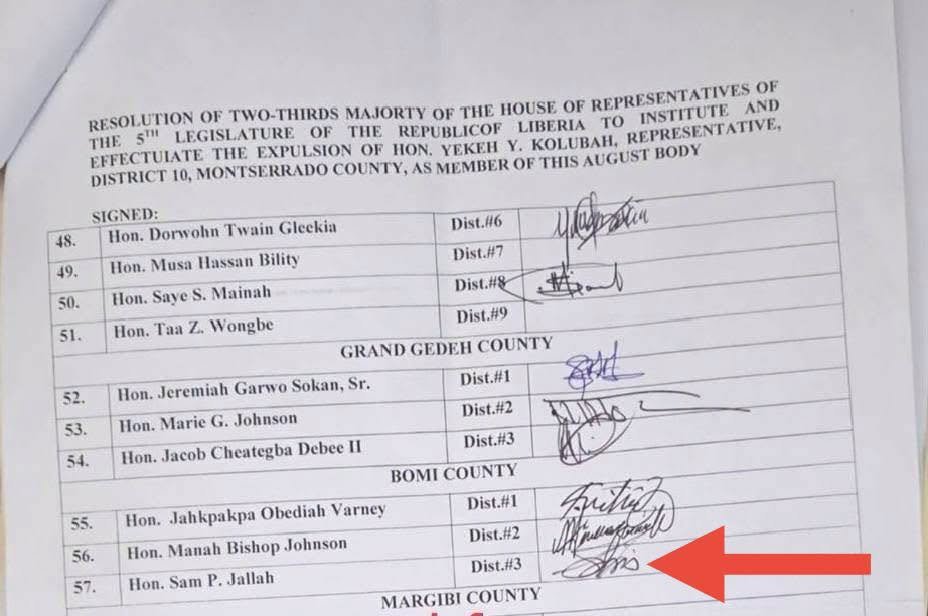 RESOLUTION OF TWO-THIRDS MAJORTY OF THE HOUSE OF REPRESENTATIVES OF
THE 5TH LEGISLATURE OF THE REPUBLICOF LIBERIA TO INSTITUTE AND
EFFECTUIATE THE EXPULSION OF HON. YEKEH Y. KOLUBAH, REPRESENTATIVE,
DISTRICT 10, MONTSERRADO COUNTY, AS MEMBER OF THIS AUGUST BODY
SIGNED:
48. Hon. Dorwohn Twain Gleekia Dist.#6
49. Hon. Musa Hassan Bility Dist.#7
50. Hon. Saye S. Mainah Dist.#8
51. Hon. Taa Z. Wongbe Dist.#9
GRAND GEDEH COUNTY
52. Hon. Jeremiah Garwo Sokan, Sr. Dist.#1
53. Hon. Marie G. Johnson Dist.#2
54. Hon. Jacob Cheategba Debee II Dist.#3
BOMI COUNTY
55. Hon. Jahkpakpa Obediah Varney Dist.#1
56. Hon. Manah Bishop Johnson Dist.#2
57. Hon. Sam P. Jallah Dist.#3
MARGIBI COUNTY